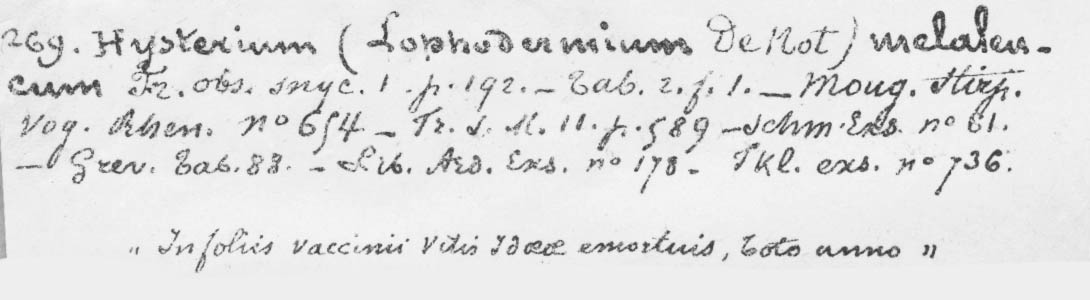 269. Hysterium (Lophodermium De Not) melaleu-
cum Fr. obs. myc. 1. p. 192. — Tab. 2. f. 1. — Moug. Stirp.
Vog. Rhen. nº 654 — Fr. S. M. 11. p. 589 — Schm. Exs. nº 61.
— Grev. Tab. 88. — Lib. Ard. Exs. nº 178 — Fkl. exs. nº 736.
„ In foliis vaccinii Vitis Idææ emortuis, toto anno "